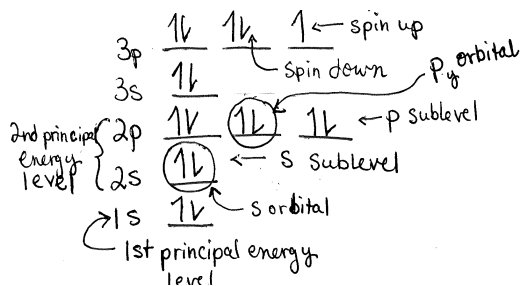 3p 1l 1l 1 ← spin up
spin down
Py orbital
3s 1l
2nd principal energy level { 2p 1l 1l 1l ← p sublevel
2s 1l ← s sublevel
s orbital
1s 1l
1st principal energy
level